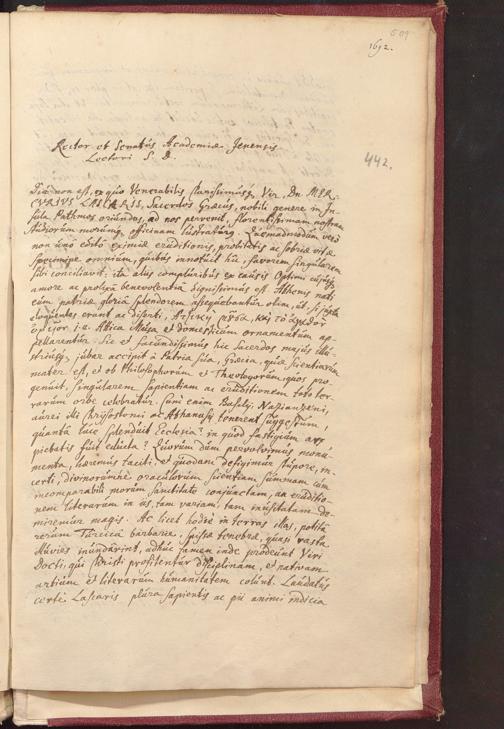 509
1692.
442.
Rector et Senatus Academiæ Jenensis
Lectori S. D.
Diu non est, ex quo Venerabilis Clarissimusq; Vir, Dn. MER-
CURIUS LASCARIS, Sacerdos Græcus, nobili genere in In-
sula Pathmos oriundus, ad nos pervenit, florentissimam nostram
studiorum morumq; officinam lustraturq. Quemadmodum vero
non uno eximiæ eruditionis, probitatis ac sobriæ vitæ
specimine omnium, quibus innotuit hic, favorem singularem
sibi conciliavit: ita aliis compluribus ex causis Optimi cujusq;
amore ac prolixa benevolentia dignissimus est. Athenis nati
cum patriæ gloria splendorem assequebantur olim, ut, si
eloquentes erant ac diserti, Ἀττικὴ μοῦσα, καὶ τὸ
i. e. Attica Musa, et domesticum ornamentum ap-
pellarentur. Sic et facundissimus hic Sacerdos majus illu-
striusq; jubar accipit a Patria sua, Græcia, quæ scientiarum
mater est, et ob Philosophorum et Theologorum, quos pro-
genuit, singularem sapientiam ac eruditionem toto ter-
rarum orbe celebratur. Cum enim Basilii, Nazianzeni,
aurei illi Chrysostomi ac Athanasii tenerent suggestum,
quanta luce splenduit Ecclesia? in quod fastigium
pietatis fuit educta? Quorum dum pervolvimus monu-
menta, hæremus taciti, et quodam defigimur stupore, in-
certi, divinorumne oraculorum scientiam summam cum
incomparabili morum sanctitate conjunctam, an eruditio-
nem literarum in iis, tam variam, tam inusitatam de-
miremur magis. Ac licet hodie in terras illas, politi-
rerum Turcica barbarie, spissæ tenebræ, quasi vasta
diluvies inundarint, adhuc tamen inde prodeunt Viri
Docti, qui Christi profitentur disciplinam, et nativam
artium et literarum humanitatem colunt. Laudatus
certe Lascaris plura sapientis ac pii animi indicia